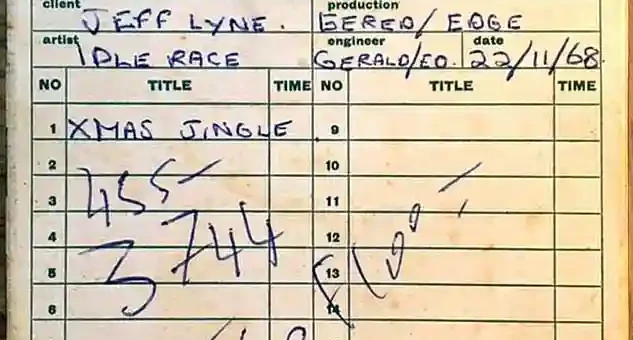 client JEFF LYNE. production GERED/EDGE
artist IDLE RACE engineer GERALD/ED. date 22/11/68.
NO TITLE TIME NO TITLE TIME
1 XMAS JINGLE 9
2 10
3 455- 11
4 3744 12
5 13
6 14